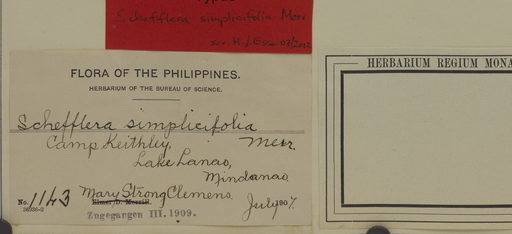 Schefflera simplicifolia Merr
FLORA OF THE PHILIPPINES.
HERBARIUM OF THE BUREAU OF SCIENCE.
Schefflera simplicifolia
Camp Keithley, Merr.
Lake Lanao,
Mindanao.
No. 1143 Mary Strong Clemens.
36936-2 Elmer D. Merrill.
July 1907.
Zugegangen III. 1909.
HERBARIUM REGIUM MONA